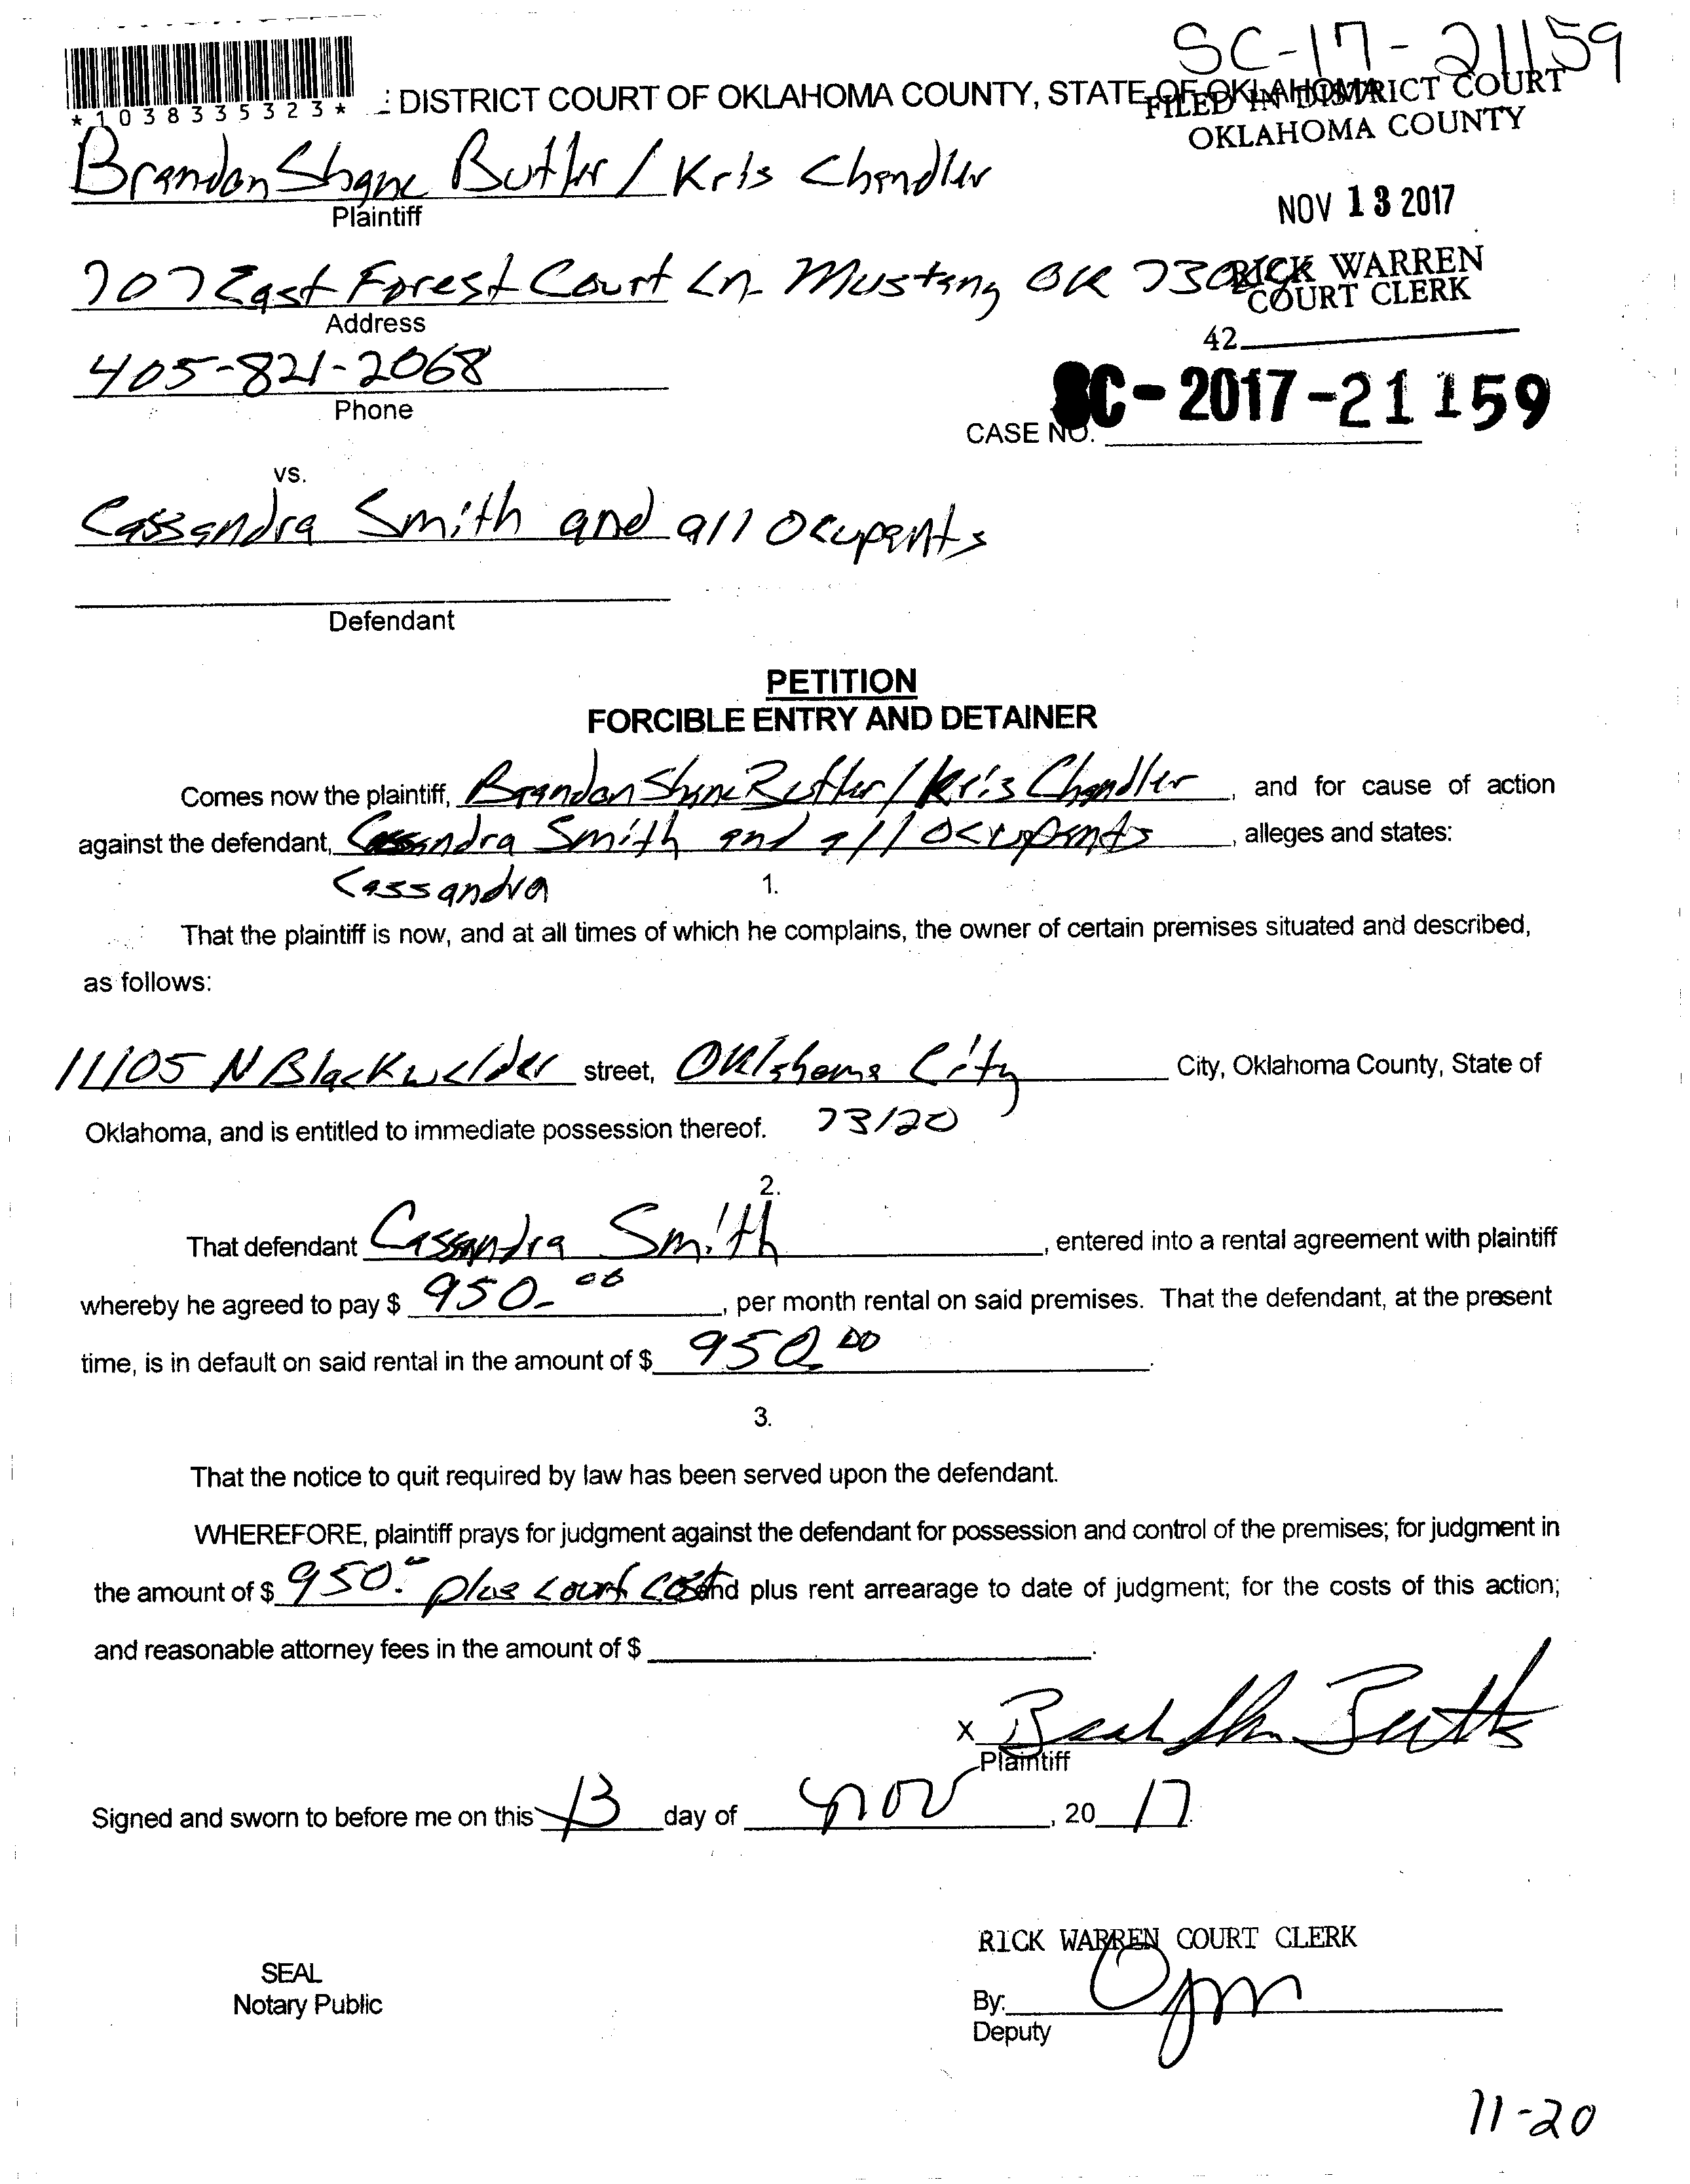 SC-17-21159
*1038335323*
: DISTRICT COURT OF OKLAHOMA COUNTY, STATE OF OKLAHOMA
FILED IN DISTRICT COURT
OKLAHOMA COUNTY
Brandon Shane Butler / Kris Chandler
Plaintiff
NOV 13 2017
707 East Forest Court Ln. Mustang OK
RICK WARREN
COURT CLERK
Address
42
405-821-2068
Phone
SC-2017-21159
CASE NO.
vs.
Cassandra Smith and all Ocupents
Defendant
PETITION
FORCIBLE ENTRY AND DETAINER
Comes now the plaintiff, Brandon Shane Butler / Kris Chandler, and for cause of action
against the defendant, Cassandra Smith and all Ocupents, alleges and states:
Cassandra
1.
That the plaintiff is now, and at all times of which he complains, the owner of certain premises situated and described,
as follows:
11105 N Blackwelder street, Oklahoma City City, Oklahoma County, State of
Oklahoma, and is entitled to immediate possession thereof. 73120
2.
That defendant Cassandra Smith, entered into a rental agreement with plaintiff
whereby he agreed to pay $ 950.00, per month rental on said premises. That the defendant, at the present
time, is in default on said rental in the amount of $ 950.00.
3.
That the notice to quit required by law has been served upon the defendant.
WHEREFORE, plaintiff prays for judgment against the defendant for possession and control of the premises; for judgment in
the amount of $ 950.- plus court cost and plus rent arrearage to date of judgment; for the costs of this action;
and reasonable attorney fees in the amount of $ .
X
Plaintiff
Signed and sworn to before me on this 13 day of nov, 20 17.
RICK WARREN COURT CLERK
SEAL
Notary Public
By:
Deputy
11-20